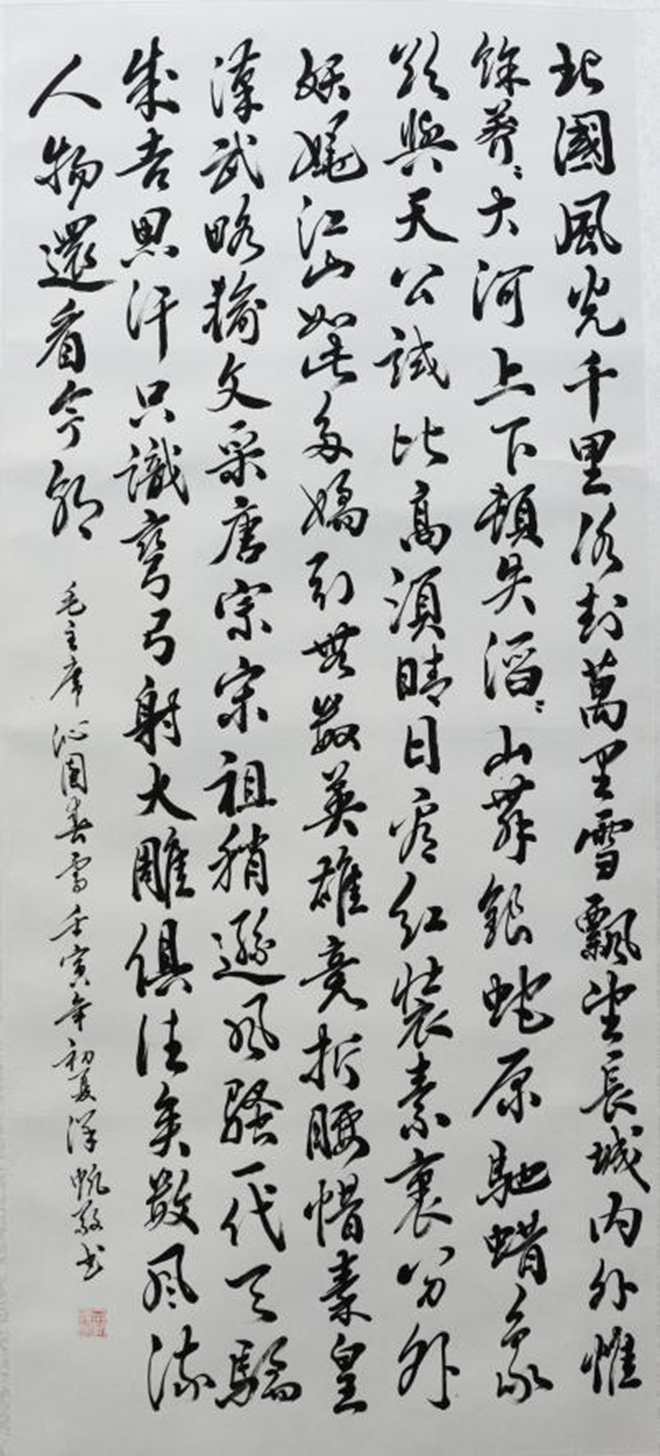 北國風光千里冰封萬里雪飄望長城内外惟
餘莽〻大河上下頓失滔〻山舞銀蛇原馳蜡象
欲與天公試比高須晴日看紅裝素裹分外
妖嬈江山如此多嬌引無數英雄竟折腰惜秦皇
漢武略輸文采唐宗宋祖稍遜风騷一代天驕
成吉思汗只識彎弓射大雕俱往矣數风流
人物還看今朝
毛主席沁園春雪壬寅年初夏帆敬书